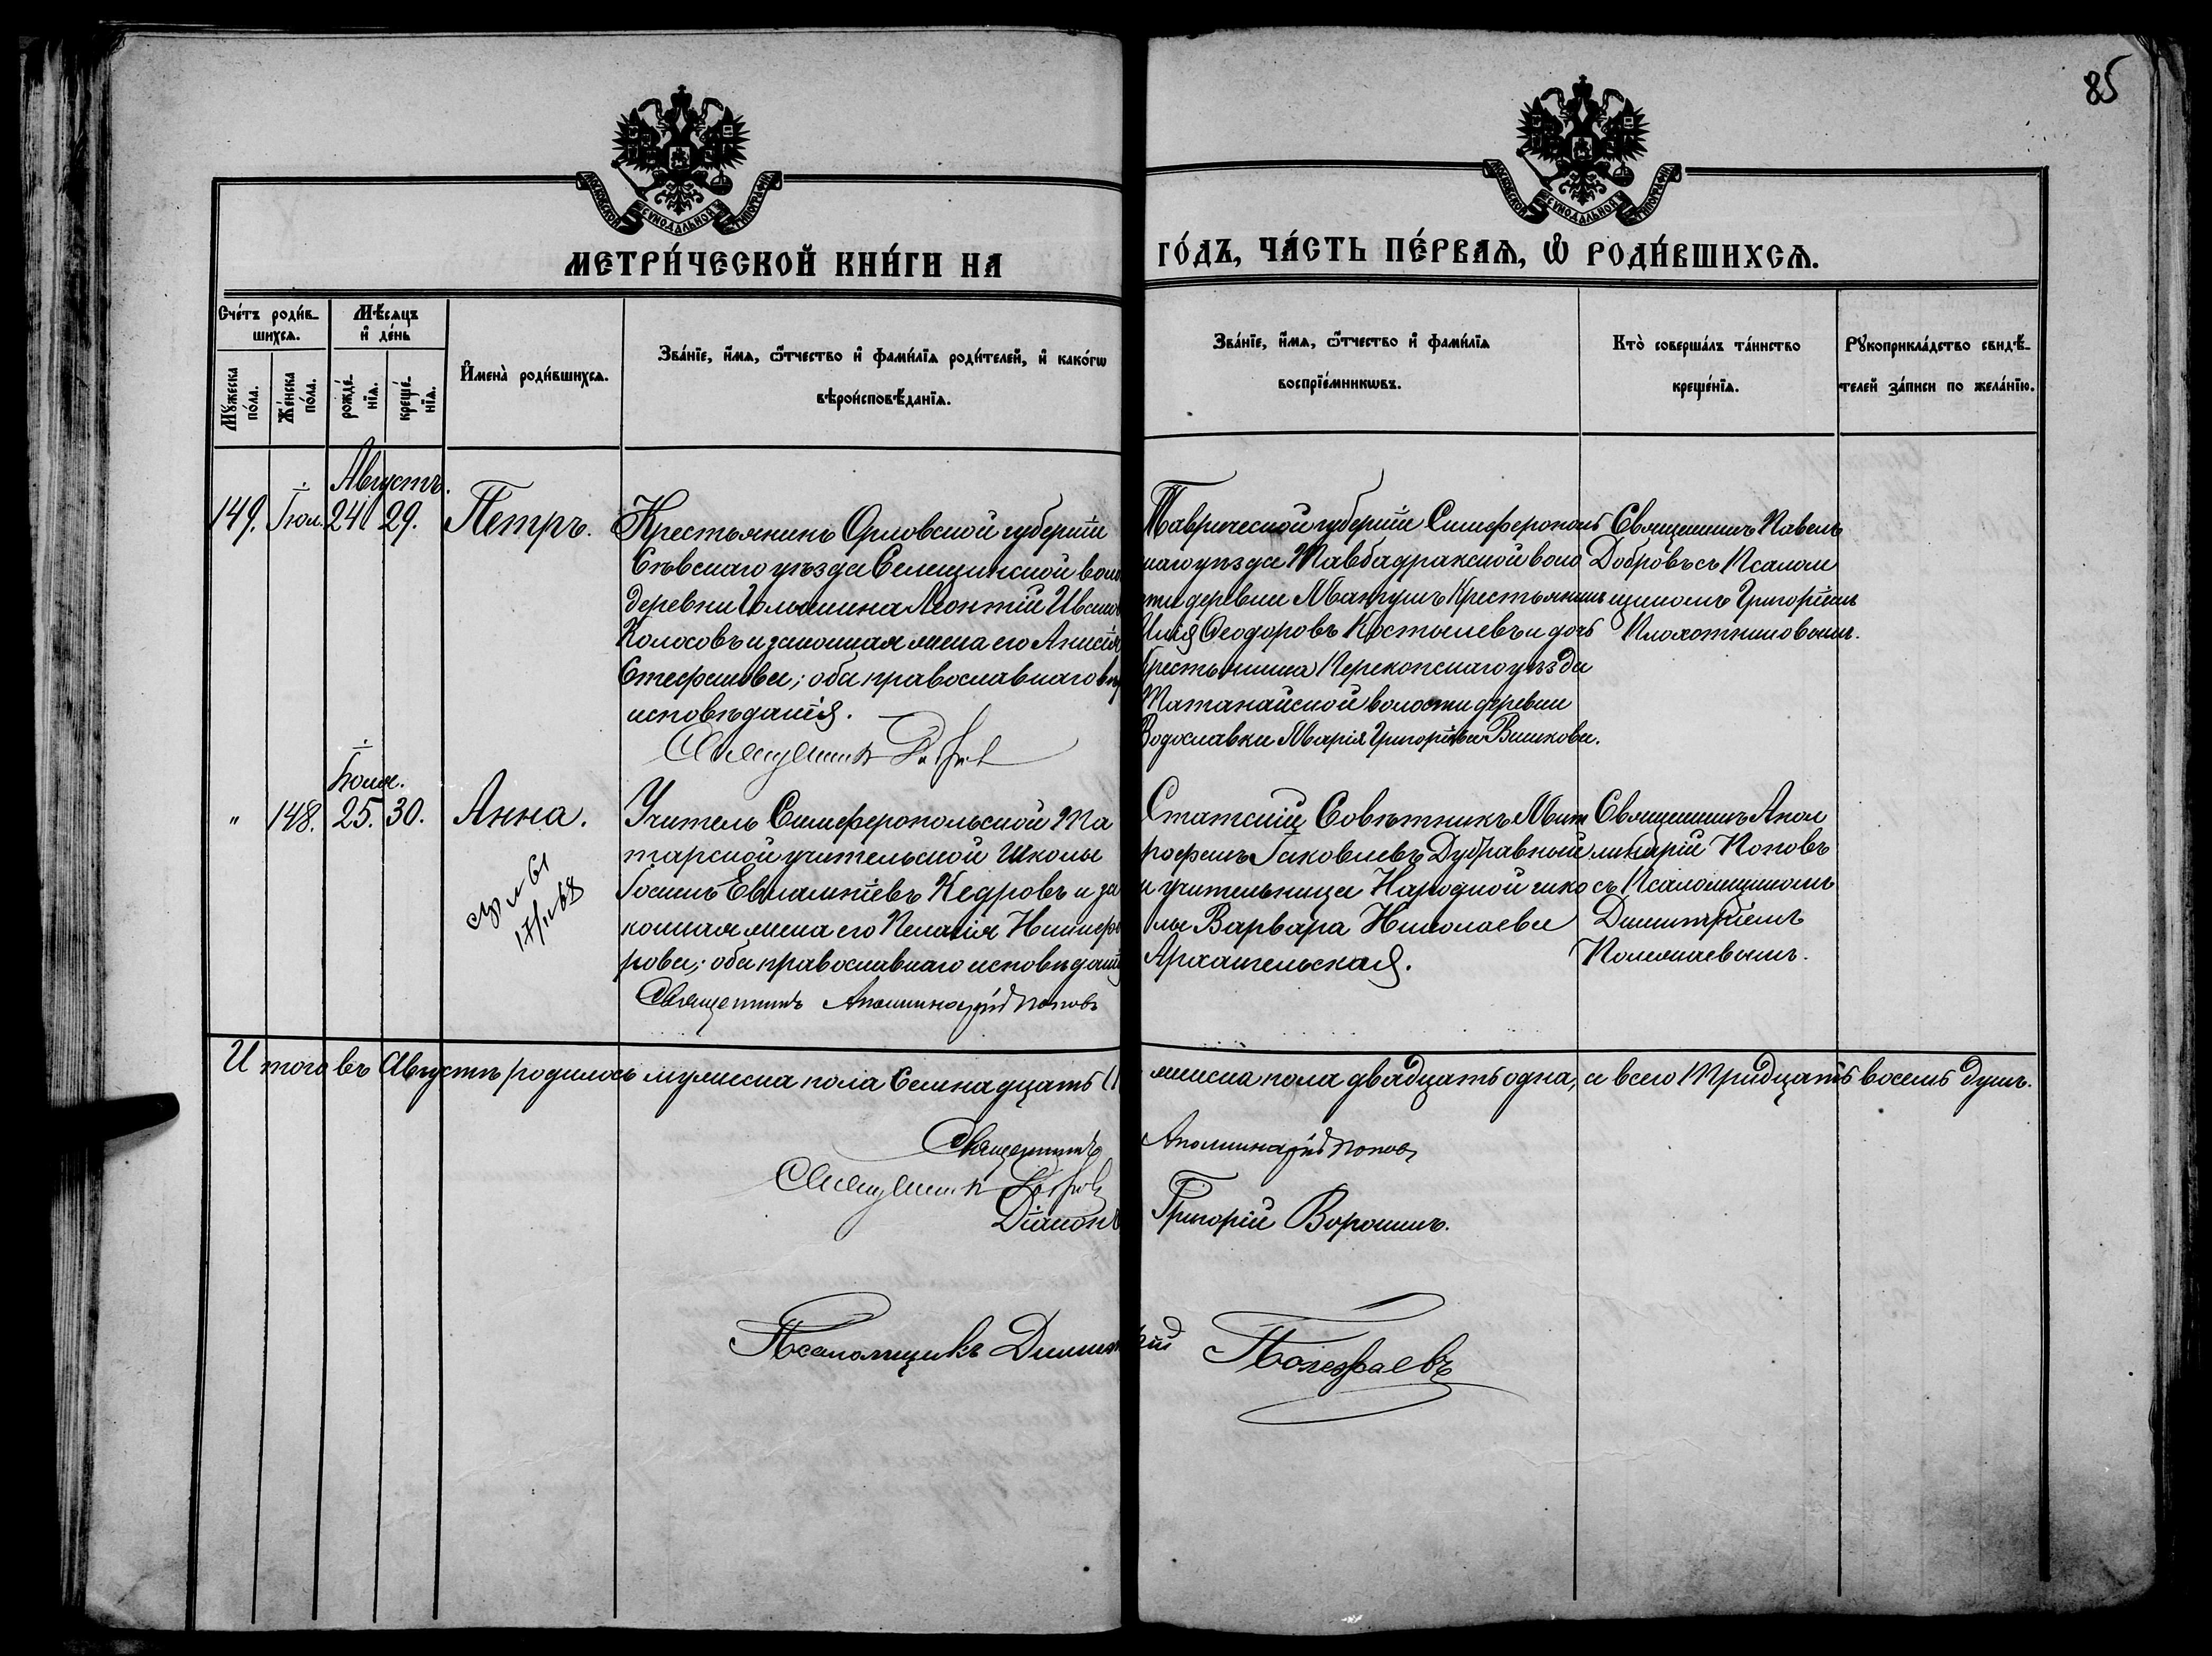 85
МОСКОВСКОЙ СУНОДАЛЬНОЙ ТИПОГРАФІИ
МОСКОВСКОЙ СУНОДАЛЬНОЙ ТИПОГРАФІИ
МЕТРИ́ЧЕСКОЙ КНИ́ГИ НА ГО́ДЪ, ЧА́СТЬ ПЕ́РВАѦ, Ѡ҆ РОДИ́ВШИХСѦ.
Сче́тъ роди́в-
шихсѧ.
Мꙋ́жеска
по́ла.
Же́нска
по́ла.
Мѣ́сѧцъ
и҆ де́нь
рожде́-
нїѧ.
креще́-
нїѧ.
И҆мена̀ роди́вшихсѧ.
Зва́нїе, и҆́мѧ, ѻ҆́тчество и҆ фами́лїѧ роди́телей, и҆ како́гѡ
вѣроисповѣ́данїѧ.
Зва́нїе, и҆́мѧ, ѻ҆́тчество и҆ фами́лїѧ
воспрїе́мникѡвъ.
Кто̀ соверша́лъ та́инство
креще́нїѧ.
Рꙋкоприкла́дство свидѣ́-
телей за́писи по жела́нїю.
Августъ.
149. Іюл. 24 29. Петръ.
Крестьянинъ Орловской губерніи
Сѣвскаго уѣзда Селещинской воло
деревни Леонтій Иванов
Колосовъ и законная жена его Анисія
Стефанова; оба православнаго вѣро
исповѣданія.
Священникъ
Таврической губерніи Симферополь
скаго уѣзда Тавбадракской воло
сти деревни Мангушъ Крестьянинъ
Илія Ѳеодоровъ Костылевъ и дочь
Крестьянина Перекопскаго уѣзда
Магазинской волости деревни
Водославки Марія Григорьева
Священникъ Павелъ
Добровъ съ Псалом
щикомъ Григоріемъ
Плохотниковымъ.
Іюля.
" 148. 25. 30. Анна.
Учитель Симферопольской Та
тарской учительской Школы
Іосифъ Евлампіевъ Кедровъ и за
конная жена его Пелагія Никифо
рова; оба православнаго исповѣданія
Священникъ Аполлинарій Поповъ
Статскій Совѣтникъ Мит
рофанъ Іаковлевъ Дубравный
и учительница Народной шко
лы Варвара Николаева
Архангельская.
Священникъ Апол
линарій Поповъ
съ Псаломщикомъ
Димитріемъ
Полежаевымъ.
Итого въ Августѣ родилось мужеска пола Семнадцать женска пола двадцать одна, а всего Тридцать восемь душъ.
Священникъ Аполлинарій Поповъ
Священникъ
Діаконъ Григорій Воронинъ.
Псаломщикъ Димитрій Полежаевъ